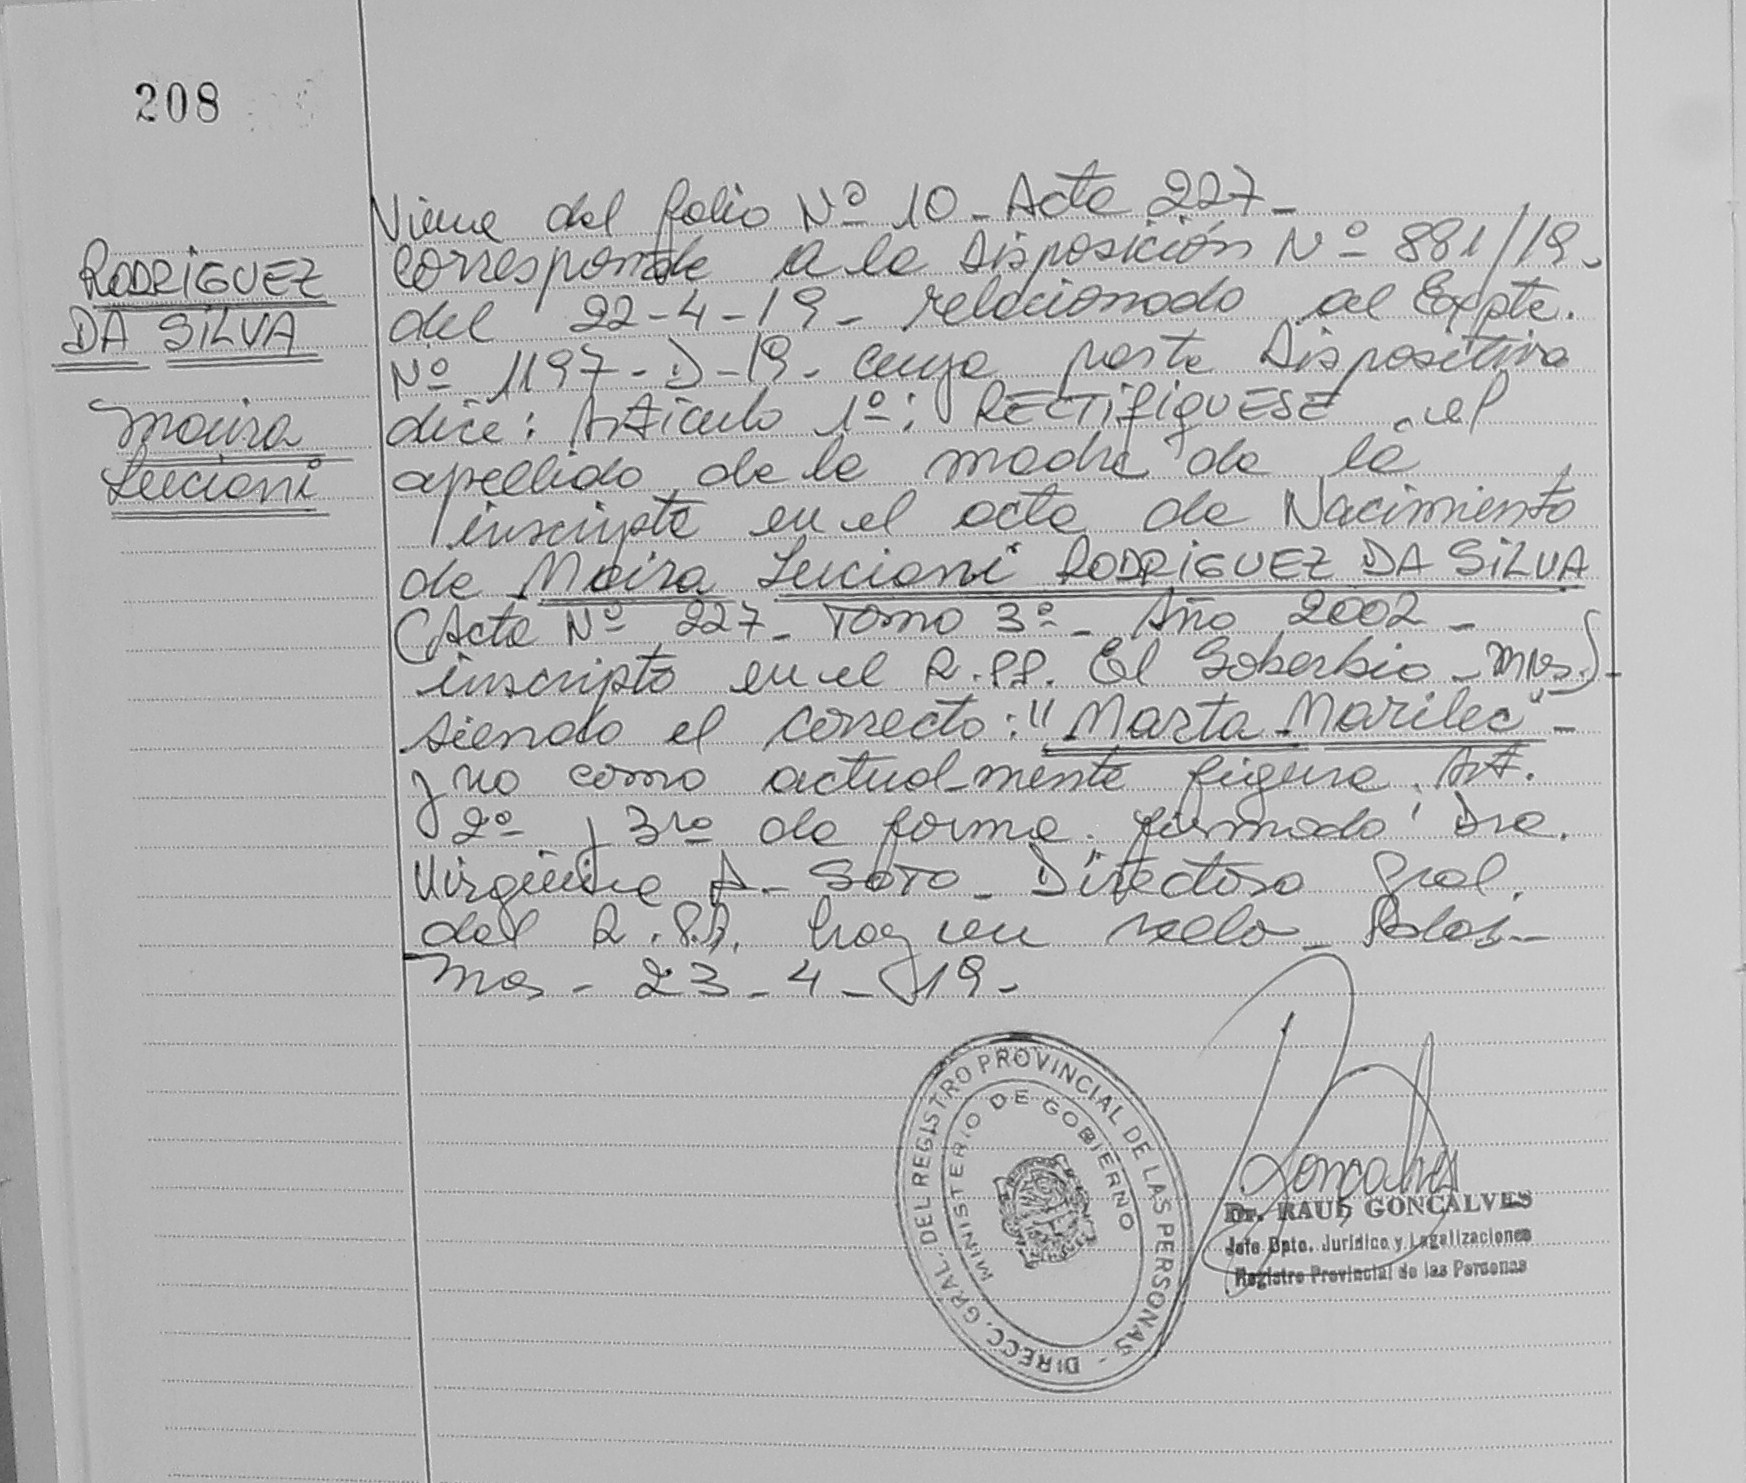 208
RODRIGUEZ
DA SILVA
Moira
Luciani
Viene del folio Nº 10 - Acta 227 -
Corresponde a la Disposición Nº 881/19.
del 22-4-19 - relacionado al Expte.
Nº 1197-D-19 - cuya parte Dispositiva
dice: Artículo 1º: RECTIFIQUESE el
apellido de la madre de la
inscripta en el acta de Nacimiento
de Moira Luciani RODRIGUEZ DA SILVA
(Acta Nº 227 - Tomo 3º - Año 2002 -
inscripto en el R.PP. El Soberbio - Mnes.) -
siendo el correcto: "Marta Marilec" -
y no como actualmente figura. Art.
2º y 3ro de forma. firmado: Dra.
Virginia A. SOTO - Directora Gral.
del R.P.P. hay un sello - Pdas -
Mns - 23 - 4 - 19 -
DIRECC. GRAL. DEL REGISTRO PROVINCIAL DE LAS PERSONAS -
MINISTERIO DE GOBIERNO
Dr. RAUL GONCALVES
Jefe Dpto. Jurídico y Legalizaciones
Registro Provincial de las Personas